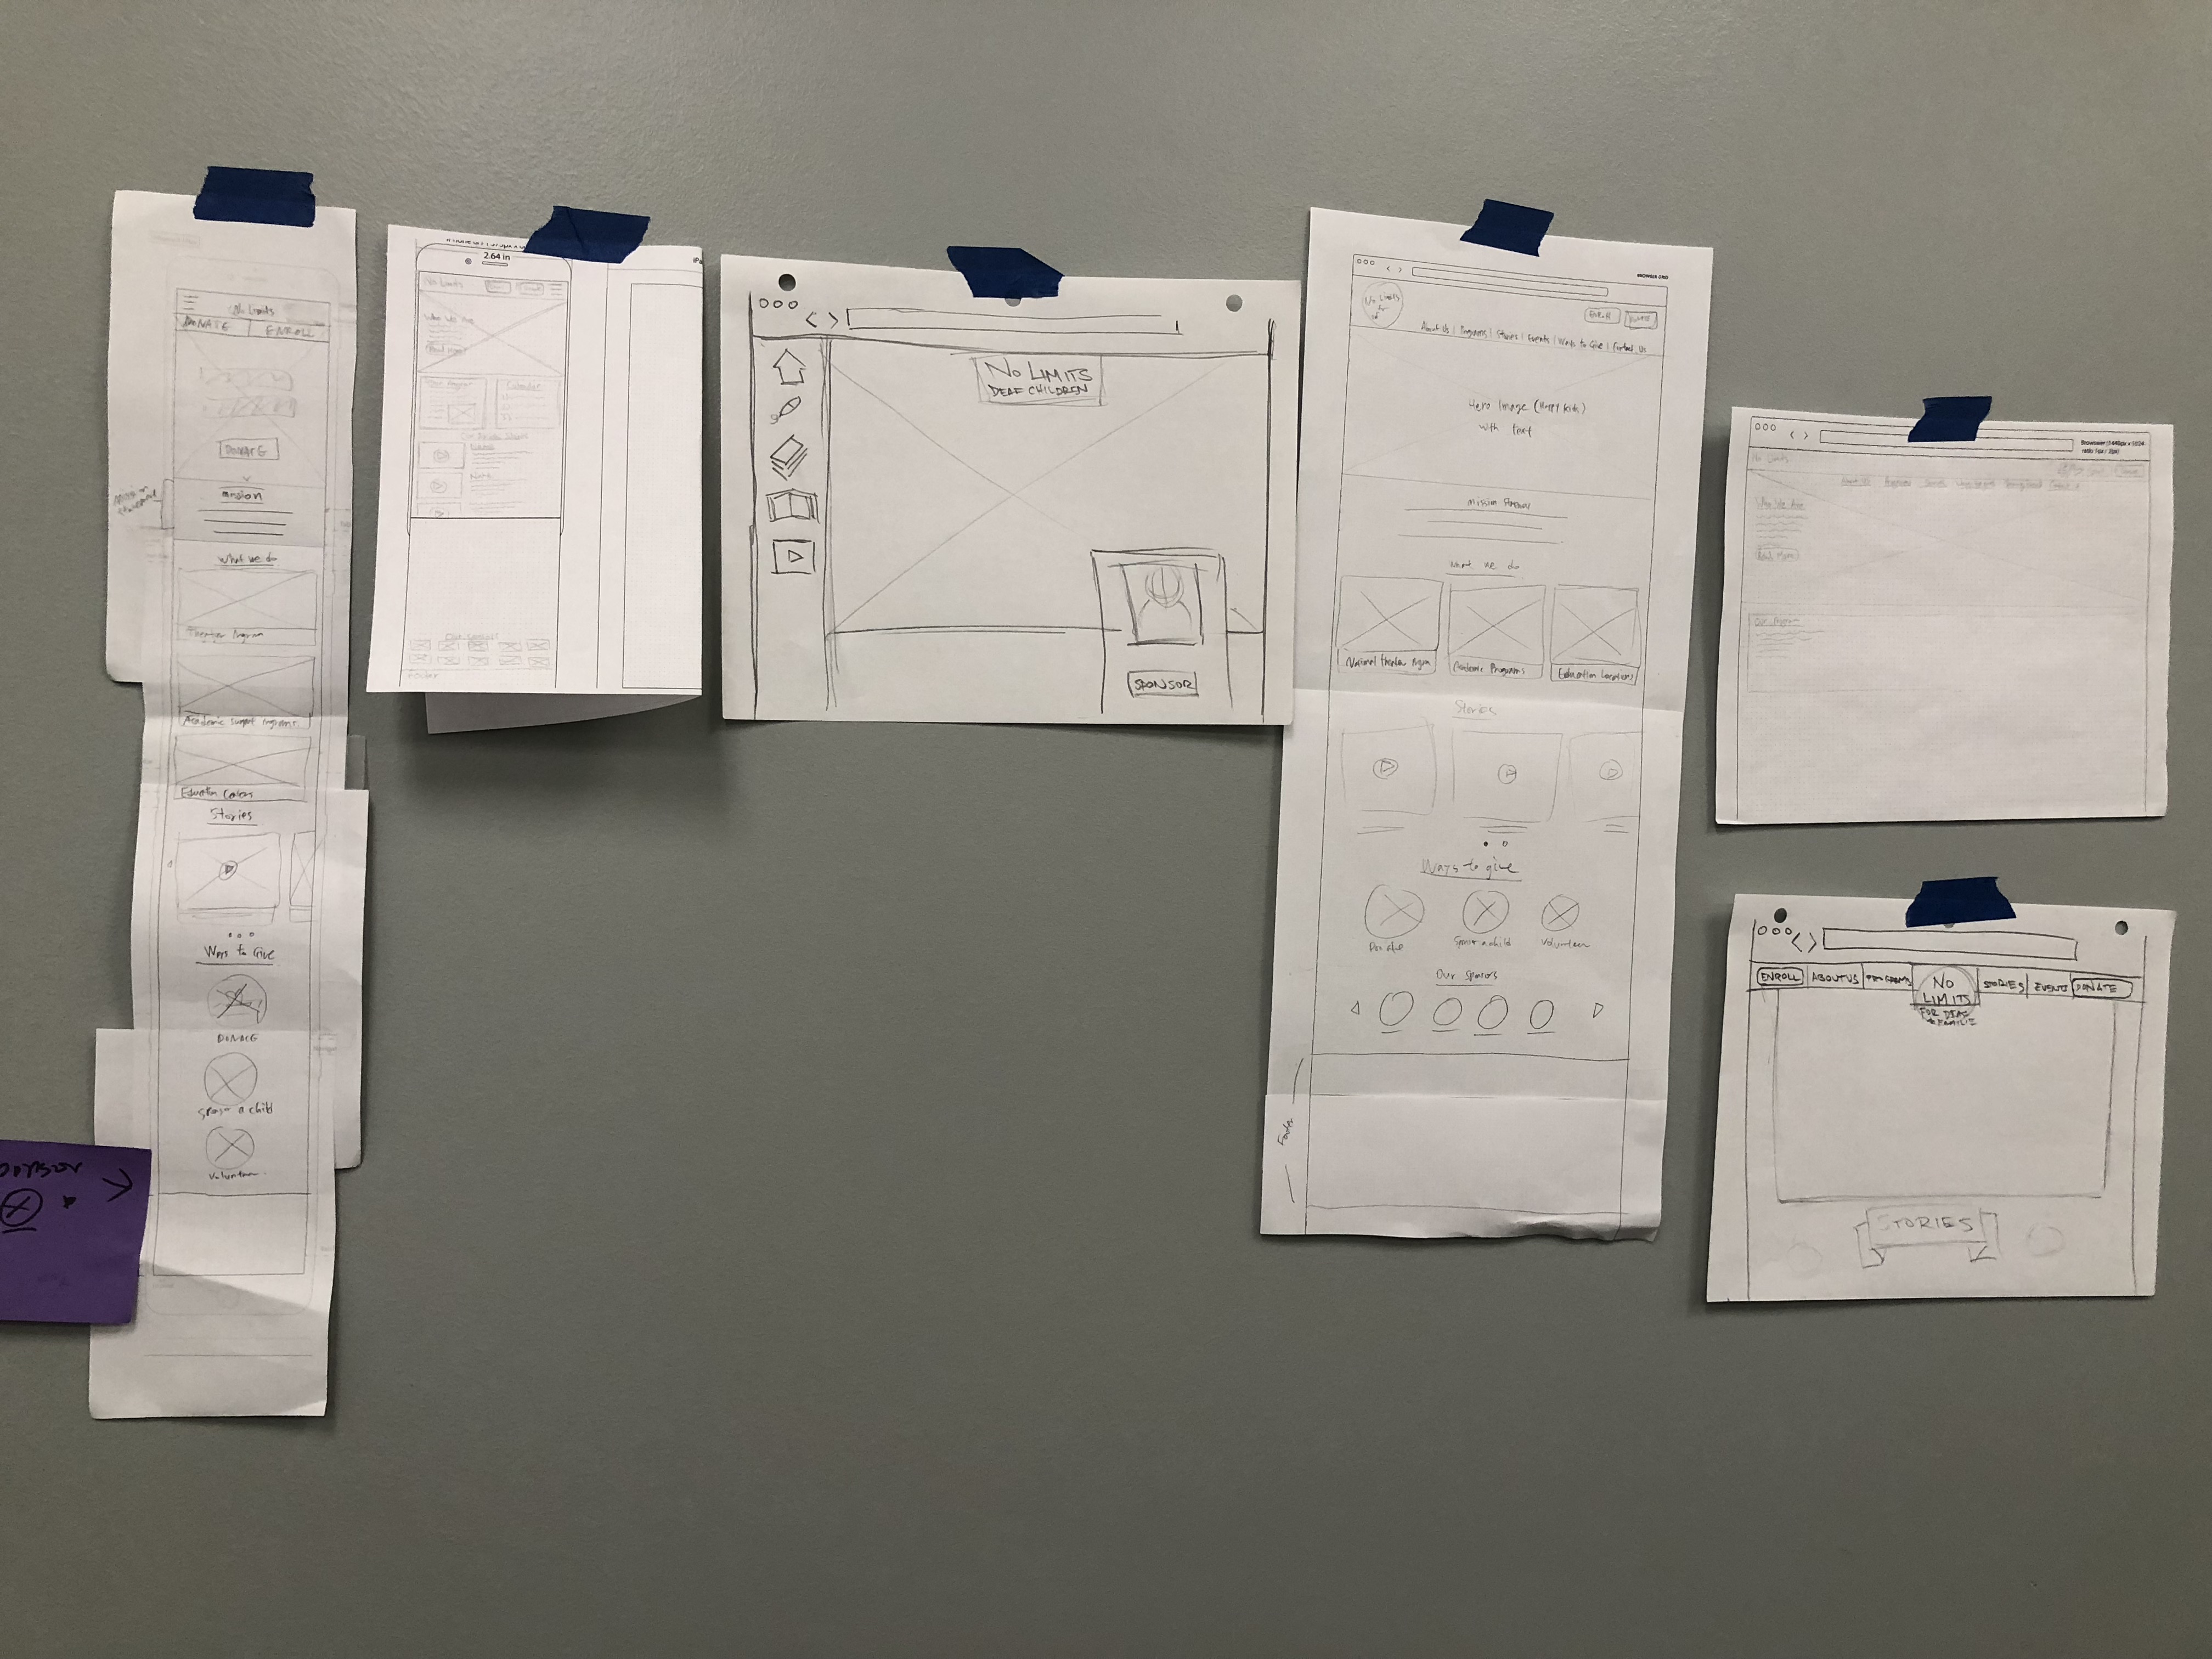 No Limits
DONATE
ENROLL
DONATE
mission
What we do
Theater Program
Academic Support Programs
Education Centers
Stories
Ways to Give
DONATE
Sponsor a child
Volunteer
2.64 in
No Limits
Who We Are
Read More
Calendar
NO LIMITS
DEAF CHILDREN
SPONSOR
BROWSER GRID
No Limits
ENROLL
DONATE
About Us | Programs | Stories | Events | Ways to Give | Contact Us
Hero Image (Happy kids)
with text
Mission Statement
What we do
National Theater Program
Academic Programs
Education Locations
Stories
Ways to give
Donate
Sponsor a child
Volunteer
Our Sponsors
Footer
Browser (1440px x 1024
No Limits
Who We Are
Read More
Our Program
ENROLL
ABOUT US
PROGRAMS
NO
LIMITS
FOR DEAF
+ FAMILIE
STORIES
EVENTS
DONATE
STORIES